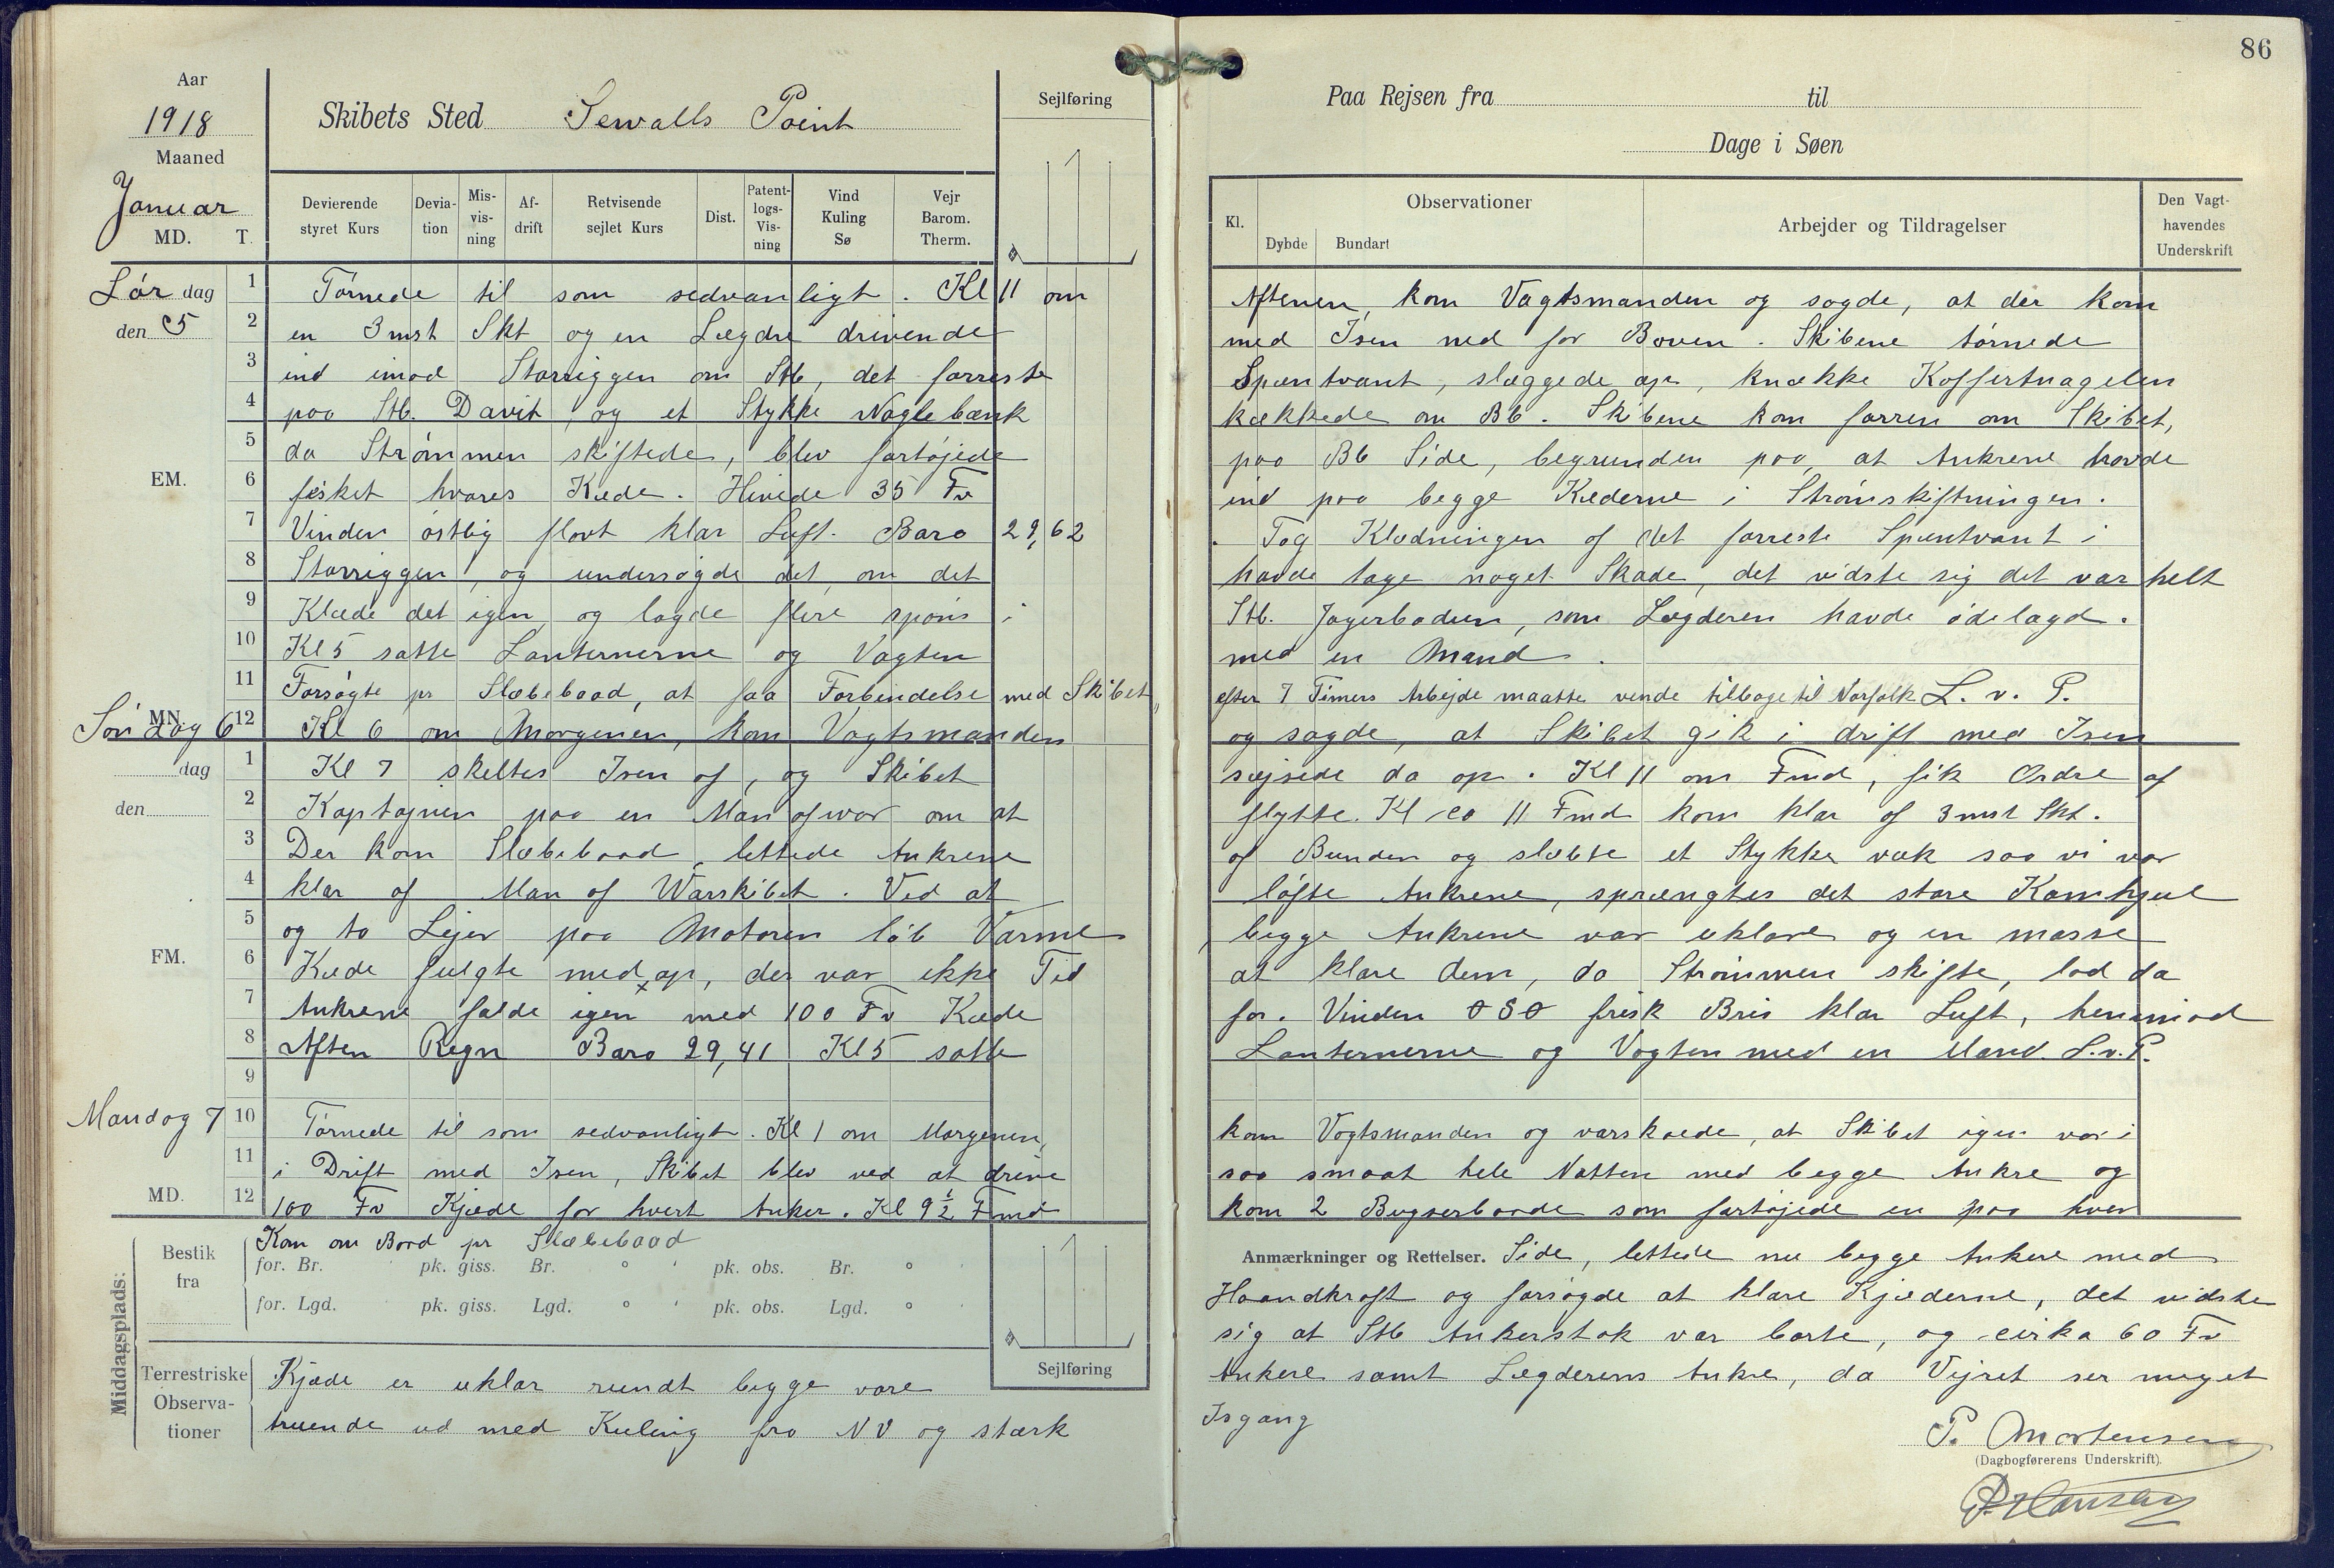 86
Aar
1918
Maaned
Januar
MD. T.
Skibets Sted Sewalls Point
Sejlføring
Paa Rejsen fra til
Dage i Søen
Devierende styret Kurs
Devia-tion
Mis-vis-ning
Af-drift
Retvisende sejlet Kurs
Dist.
Patent-logs-Vis-ning
Vind Kuling Sø
Vejr Barom. Therm.
Kl.
Observationer
Dybde Bundart
Arbejder og Tildragelser
Den Vagt-havendes Underskrift
Lør dag
den 5
1 Tørnede til som sedvanligt. Kl 11 om Aftenen, kom Vagtsmanden og sagde, at der kom
2 en 3 mst Skt og en Lægdre drivende med Isen ned for Boven. Skibene tørnede
3 ind imod Storriggen om Stb, det forreste Spæntvant, slaggede op, knække Koffertnagelen
4 paa Stb. Davit, og et Stykke Naglebænk kækkede om Bb. Skibene kom forren om Skibet,
5 da Strømmen skiftede, blev fortøjede paa Bb Side, begrunden paa, at Ankrene havde
EM.
6 fisket hvares Kæde. Hivede 35 Fv ind paa begge Kæderne i Strømskiftningen.
7 Vinden østlig flovt klar Luft. Baro 29,62. Tog Klædningen af det forreste Spæntvant i
8 Storriggen, og undersøgde det, om det havde tage noget Skade, det vidste sig det var helt
9 Klæde det igen, og lagde flere spøns i Stb. Jagerbaden, som Lægderen havde ødelagd.
10 Kl 5 satte Lanternerne og Vagten med en Mand.
11 Forsøgte pr Slæbebaad, at faa Forbindelse med Skibet, efter 7 Timers Arbejde maatte vende tilbage til Norfolk L. v. P.
MN.
Søndag 6
12 Kl 6 om Morgenen, kom Vagtsmanden og sagde, at Skibet gik i drift med Isen
dag
1 Kl 7 skeltes Isen af, og Skibet sejsede da op. Kl 11 om Fmd, fik Ordre af
den
2 Kaptajnen paa en Man of war om at flytte. Kl ca 11 Fmd kom klar af 3 mst Skt.
3 Der kom Slæbebaad, lettede Ankrene af Bunden og slæbte et Stykke væk saa vi var
4 klar af Man of Warskibet. Ved at løfte Ankrene, sprængtes det store Kamhjul
5 og to Lejer paa Motoren løb Varme, begge Ankrene var uklare og en masse
FM.
6 Kæde fulgte med op, der var ikke Tid at klare dem, da Strømmen skifte, lod da
7 Ankrene falde igen med 100 Fv Kæde for. Vinden OSO frisk Bris klar Luft, henimod
8 Aften Regn Baro 29,41 Kl 5 satte Lanternerne og Vagten med en Mand. L.v.P.
9
Mandag 7
10 Tørnede til som sedvanligt. Kl 1 om Morgenen, kom Vagtsmanden og varskoede, at Skibet igen var i
11 i Drift med Isen, Skibet blev ved at drive saa smaat hele Natten med begge Ankre og
MD.
12 100 Fv Kjæde for hvert Anker. Kl 9½ Fmd kom 2 Bugserbaade som fortøjede en paa hver
Middagsplads:
Bestik fra
Kom om Bord pr Slæbebaad
for. Br. pk. giss. Br. ° ' pk. obs. Br. ° '
for. Lgd. pk. giss. Lgd. ° ' pk. obs. Lgd. ° '
Sejlføring
Anmærkninger og Rettelser. Side, lettede nu begge Ankere med
Haandkraft og forsøgde at klare Kjæderne, det vidste
sig at Stb Ankerstok var borte, og cirka 60 Fv
Terrestriske Observa-tioner
Kjæde er uklar rundt begge vore Ankere samt Lægderens Ankre, da Vejret ser meget
truende ud med Kuling fra NV og stærk Isgang
P. Mortensen
(Dagbogførerens Underskrift).